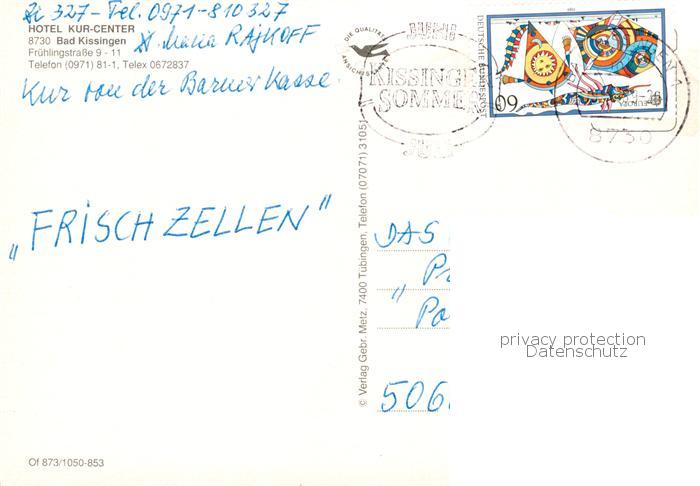 Zi 327-Tel. 0971-810 327
HOTEL KUR-CENTER
8730 Bad Kissingen
Frühlingstraße 9 - 11
Telefon (0971) 81-1, Telex 0672837
Maria RAJKOFF
Kur von der Barmer Kasse
„FRISCHZELLEN"
Of 873/1050-853
© Verlag Gebr. Metz, 7400 Tübingen, Telefon (07071) 31051
DIE QUALITÄTS
ANSICHTSKARTE
JUNI
KISSINGER
SOMMER
JULI
DEUTSCHE BUNDESPOST
60
8730
DAS
„
506
privacy protection
Datenschutz